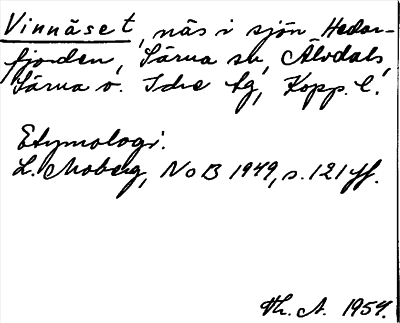 Vinnäset, näs i sjön Hedar-
fjorden, Särna sn, Älvdals,
Särna o. Idre tg, Kopp. l.
Etymologi.
L. Moberg, NoB 1949, s. 121 ff.
Th. A. 1954.